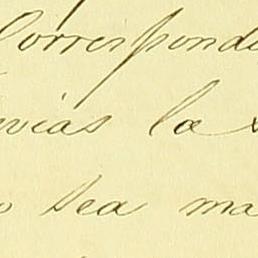 Correspondi
evias la
o sea ma